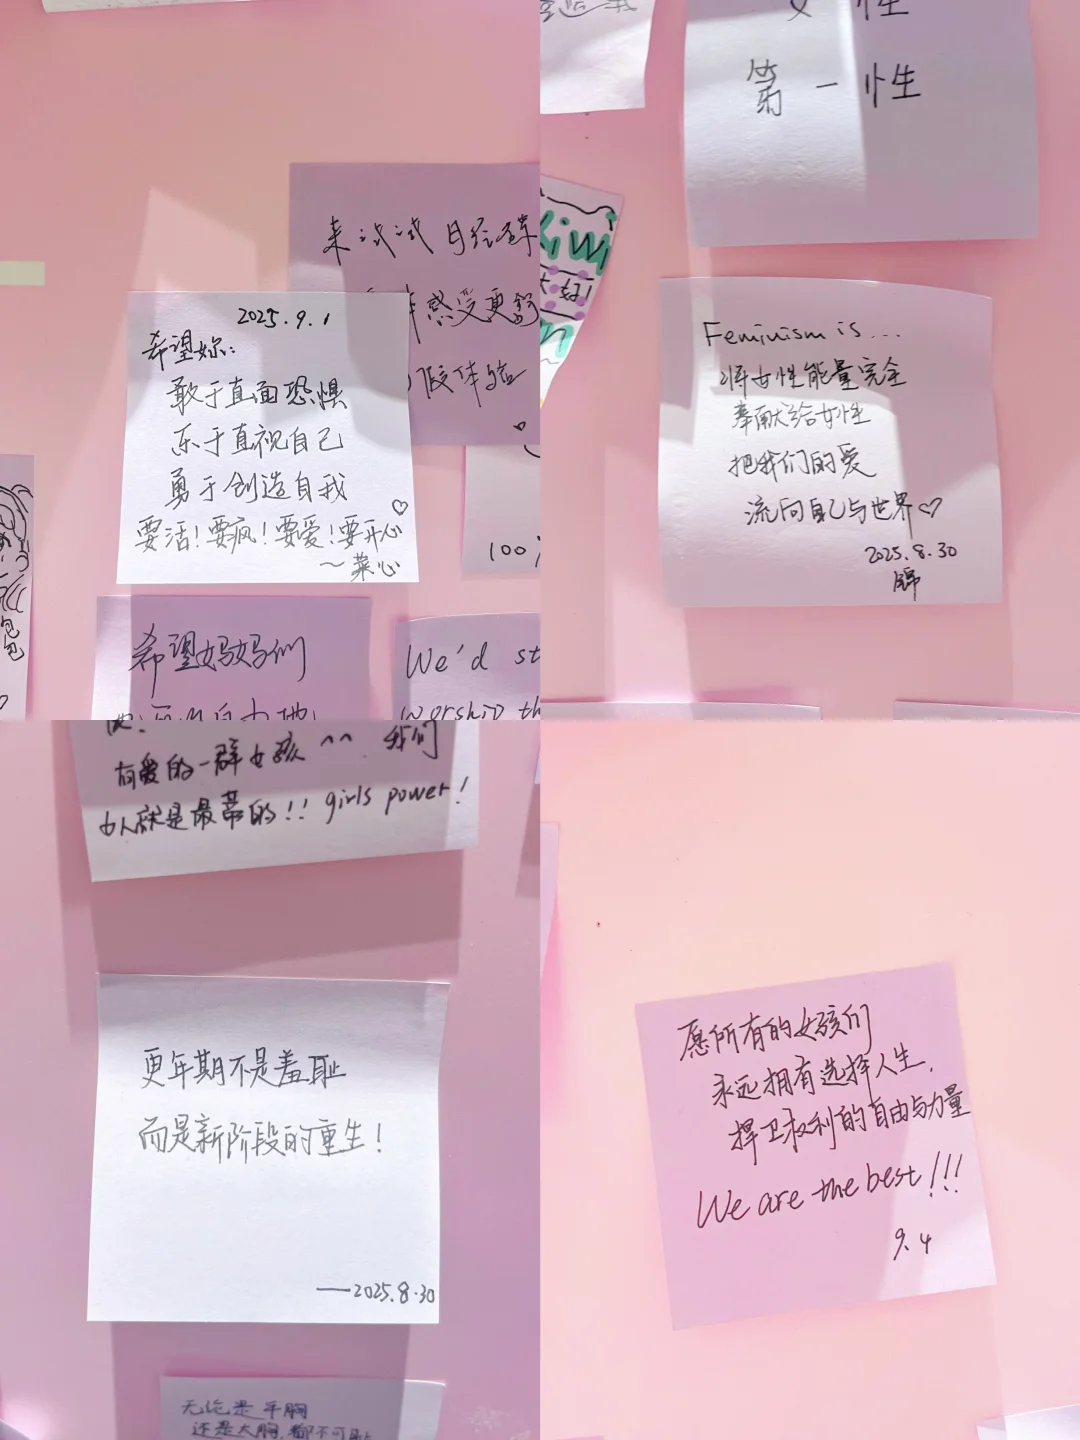 来试试月经碟
感受更舒
假体验
2025.9.1
希望妳：
敢于直面恐惧
乐于直视自己
勇于创造自我
要活！要疯！要爱！要开心
～菜心
100%
包包
希望妈妈们
We'd st
worship th
女性
第一性
Kiwi
Feminism is...
将女性能量完全
奉献给女性
把我们的爱
流向自己与世界♡
2025.8.30
锦
有爱的一群女孩 ^^ 我们
女人就是最棒的!! girls power!
更年期不是羞耻
而是新阶段的重生！
——2025.8.30
无论是平胸
还是大胸,都不可耻
愿所有的女孩们
永远拥有选择人生,
捍卫权利的自由与力量
We are the best!!!
9.4